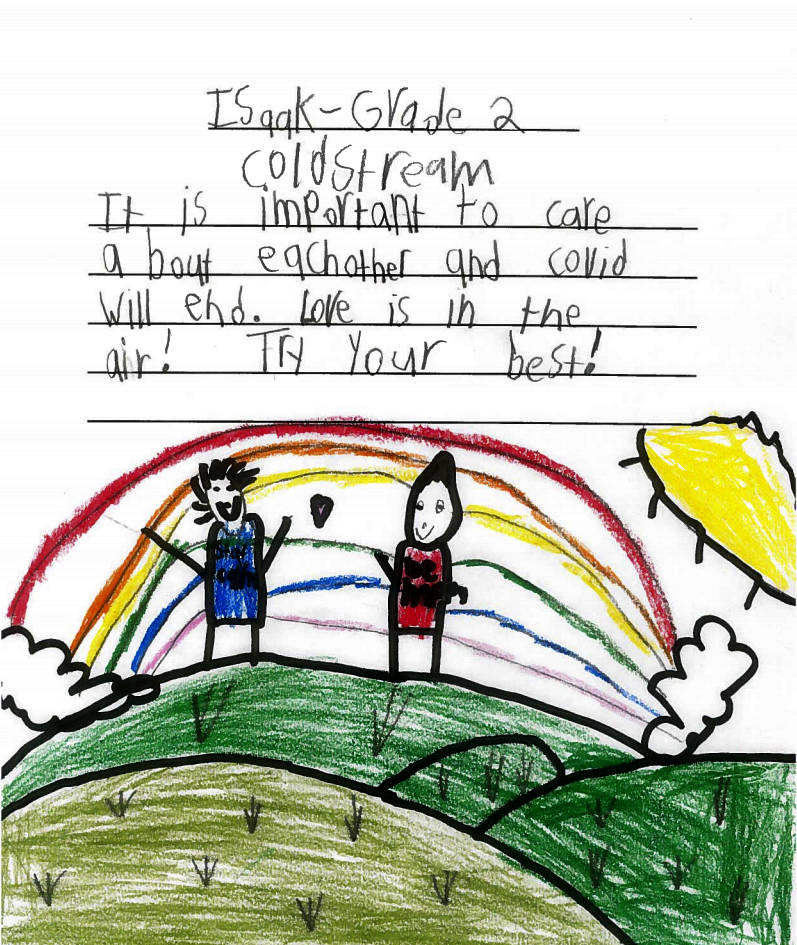 ISaak-Grade 2
ColdStream
It is important to care
a bout eachother and covid
Will end. Love is in the
air! Try Your best!
be